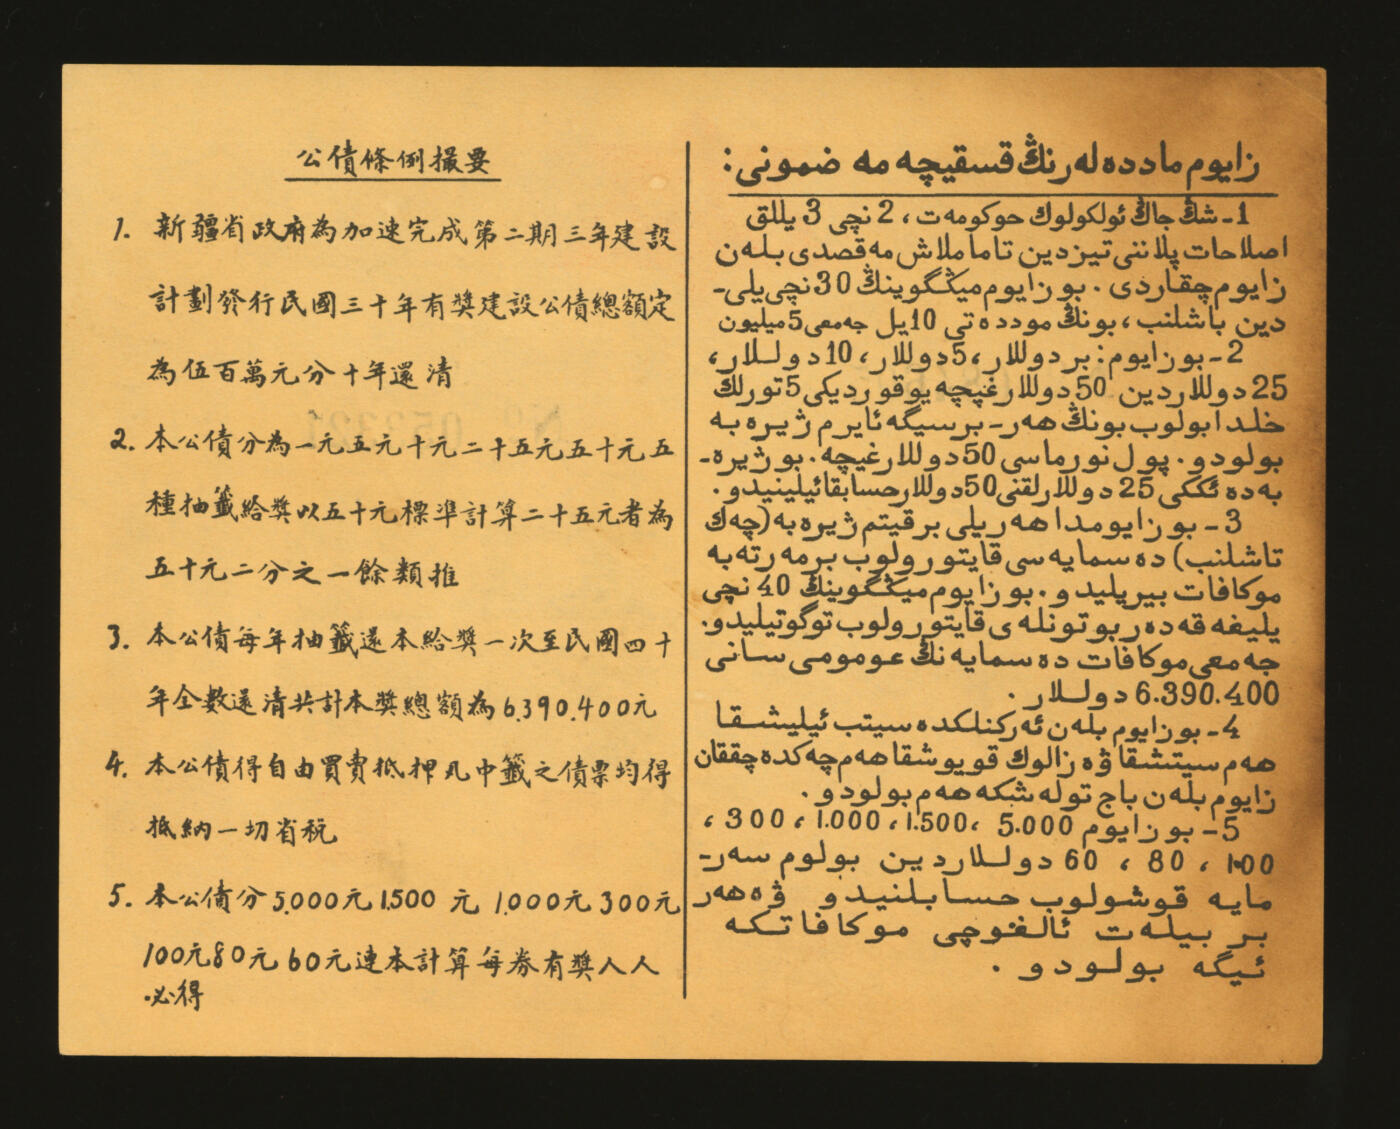 公債條例撮要
1. 新疆省政府為加速完成第二期三年建設
計劃發行民國三十年有獎建設公債總額定
為伍百萬元分十年還清
2. 本公債分為一元五元十元二十五元五十元五
種抽籤給獎以五十元標準計算二十五元者為
五十元二分之一餘類推
3. 本公債每年抽籤還本給獎一次至民國四十
年全數還清共計本獎總額為6.390.400元
4. 本公債得自由買賣抵押凡中籤之債票均得
抵納一切省稅
5. 本公債分5.000元1.500元 1.000元300元
100元80元60元連本計算每券有獎人人
必得
زايوم ماددەلەرنىڭ قسقيچە مەضمونى:
1- شڭ جاڭ ئولكولوك حوكومەت، 2 نچى 3 يللق
اصلاحات پلاننى تيزدين تاماملاش مەقصدى بلەن
زايوم چقاردى. بو زايوم ميڭگوينڭ 30 نچى يلى-
دين باشلنب، بونڭ موددەتى 10 يل جەمعى 5 ميليون
2- بو زايوم: بر دوللار، 5 دوللار، 10 دوللار،
25 دوللاردين 50 دوللارغيچە يوقورديكى 5 تورلك
خلدا بولوب بونڭ هەر- برسيگە ئايرم ژيرە بە
بولودو. پول نورماسى 50 دوللارغيچە. بو ژيرە-
بەدە ئككى 25 دوللارلقنى 50 دوللار حسابقا ئيلينيدو.
3- بو زايومدا هەر يلى برقيتم ژيرە بە (چەك
تاشلنب) دەسمايەسى قايتورولوب برمەرتەبە
موكافات بيريليدو. بو زايوم ميڭگوينڭ 40 نچى
يليغە قەدەر بوتونلەى قايتورولوب توگوتيليدو.
جەمعى موكافات دەسمايەنڭ عومومى سانى
6.390.400 دوللار.
4- بو زايوم بلەن ئەركنلكدە سيتب ئيليشقا
هەم سيتشقا ۋە زالوك قويوشقا هەم چەكدە چققان
زايوم بلەن باج تولەشكە هەم بولودو.
5- بو زايوم 5.000 ،1.500 ،1.000 ،300 ،
100 ،80 ،60 دوللاردين بولوم سەر-
مايە قوشولوب حسابلنيدو ۋە هەر
بر بيلەت ئالغوچى موكافاتكە
ئيگە بولودو.